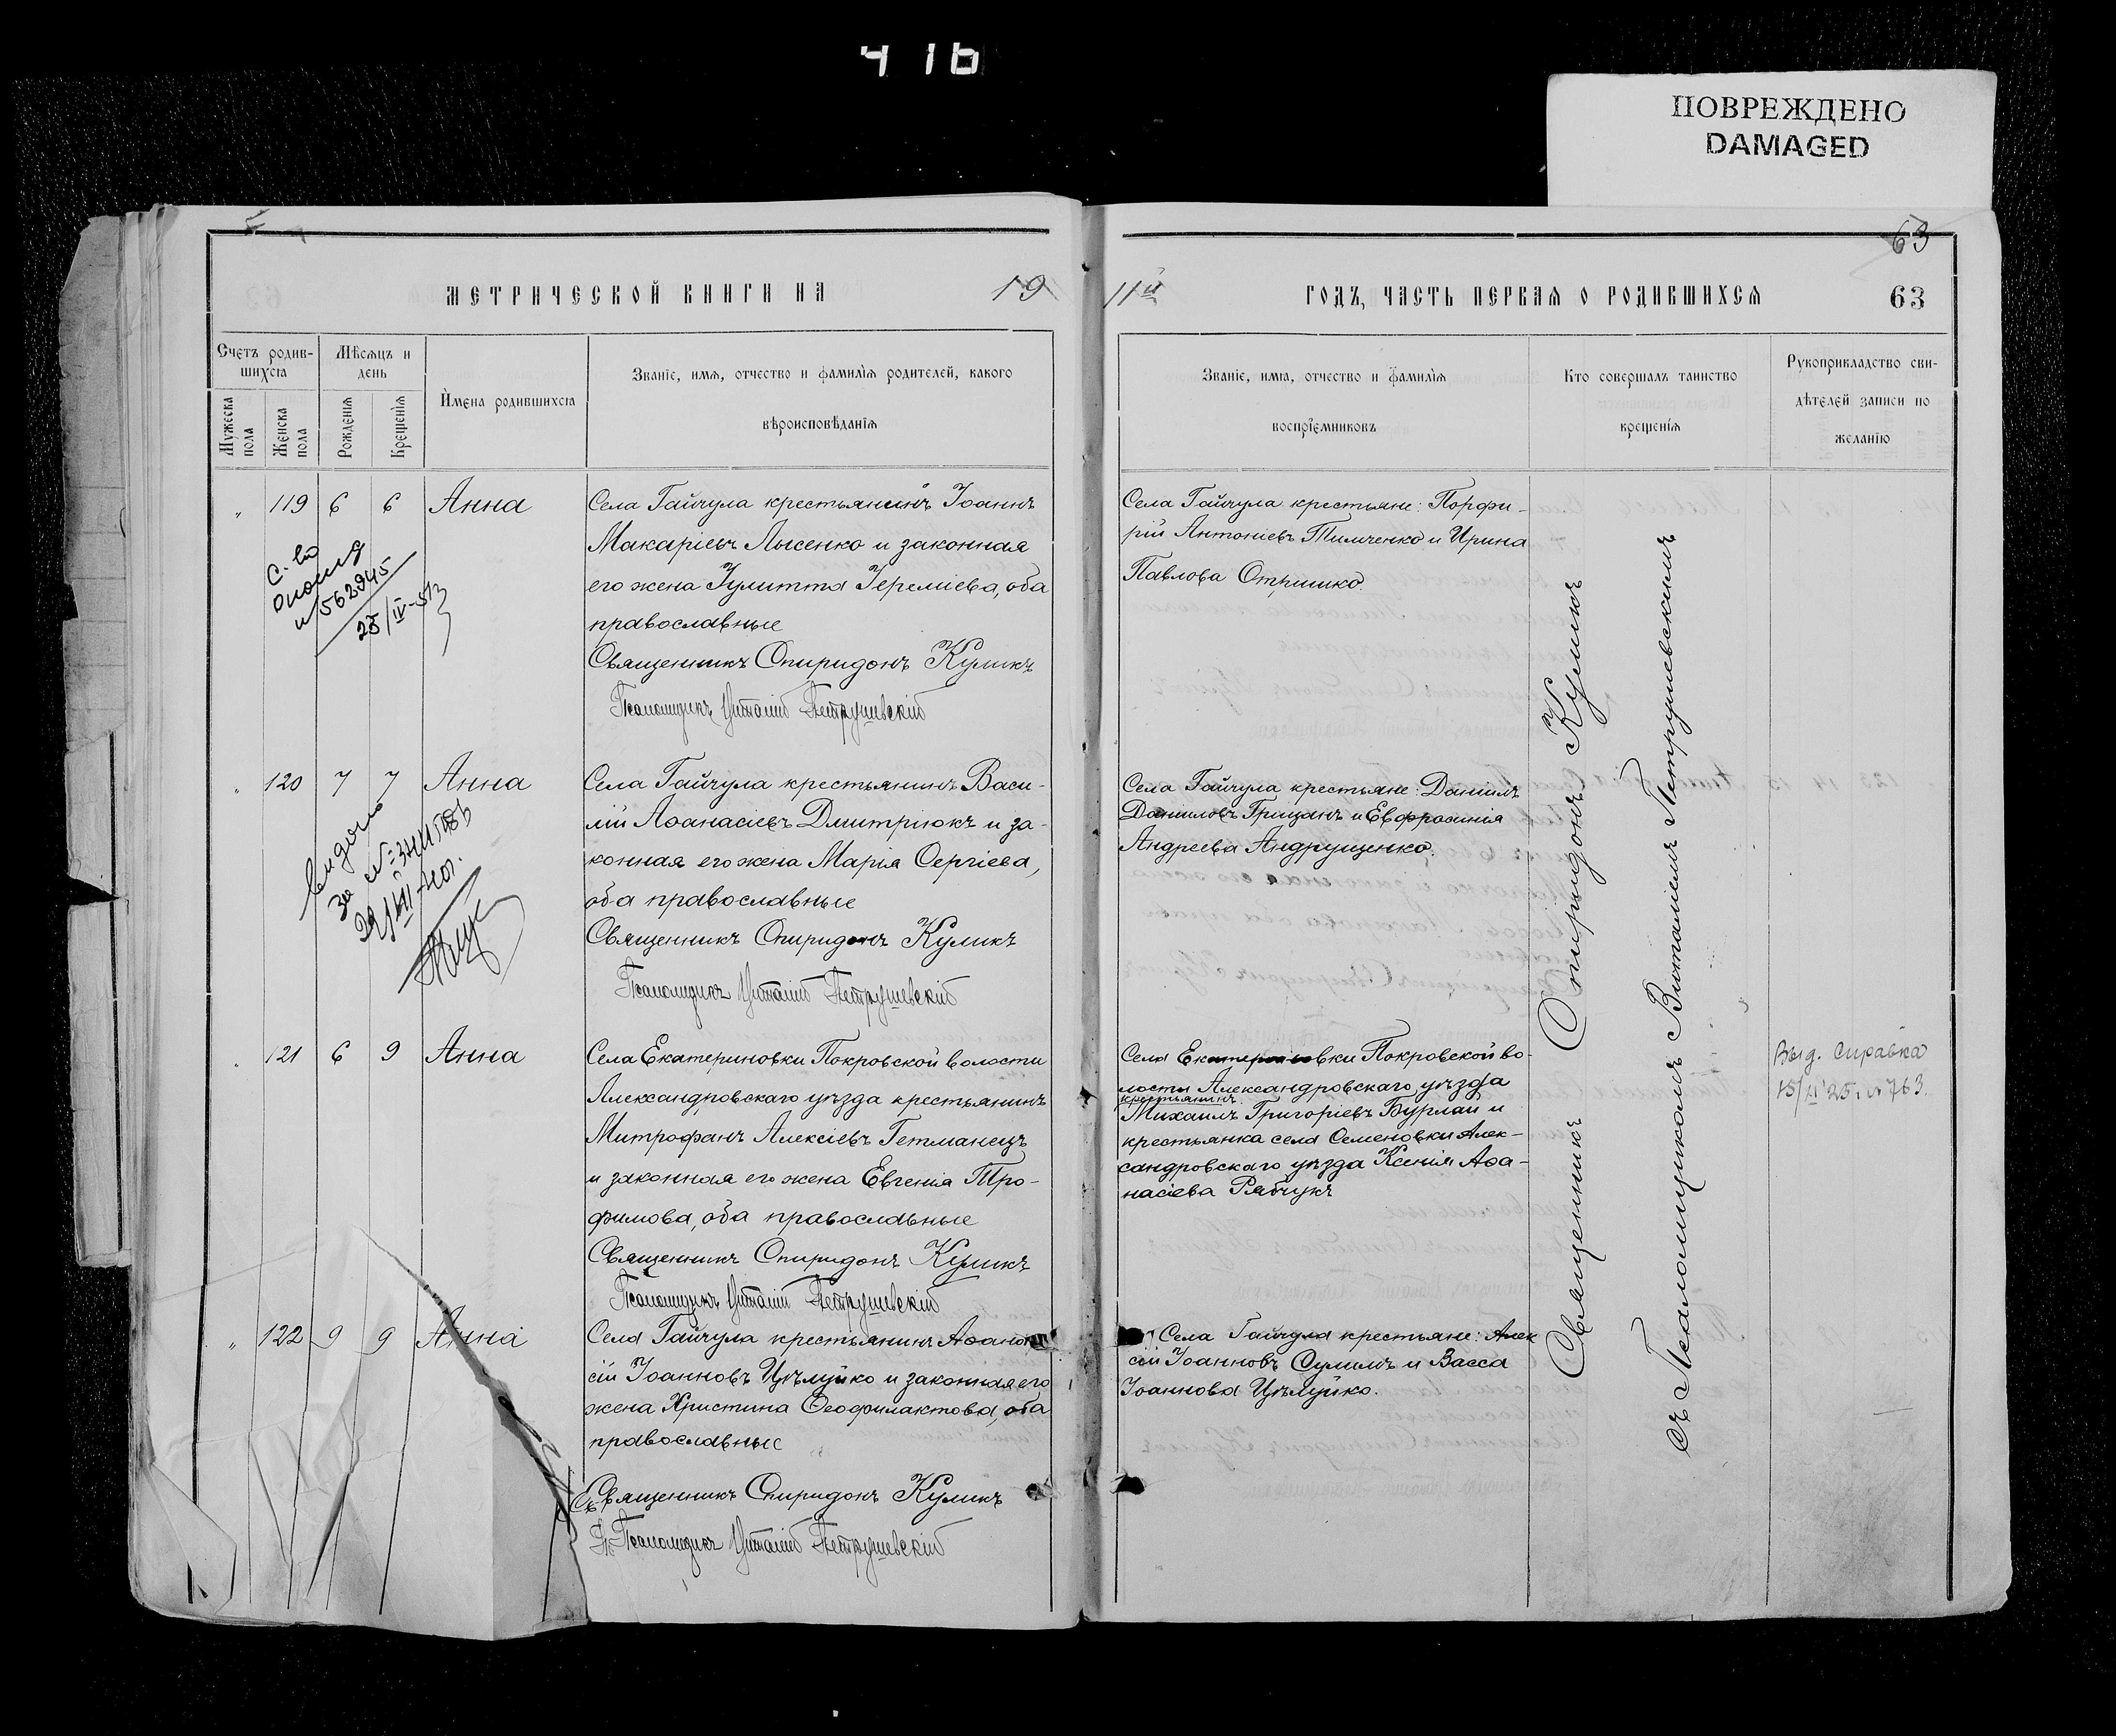 416
ПОВРЕЖДЕНО
DAMAGED
63
МЕТРИЧЕСКОЙ КНИГИ НА 19
11й ГОДЪ, ЧАСТЬ ПЕРВАЯ О РОДИВШИХСЯ 63
Счетъ родив-
шихся
Мужеска пола
Женска пола
Мѣсяцъ и
день
Рожденія
Крещенія
Имена родившихся
Званіе, имя, отчество и фамилія родителей, какого
вѣроисповѣданія
Званіе, имя, отчество и фамилія
воспріемниковъ
Кто совершалъ таинство
крещенія
Рукоприкладство сви-
дѣтелей записи по
желанію
" 119 6 6 Анна
Села Гайчула крестьянинъ Іоаннъ
Макаріевъ Лысенко и законная
его жена Іулитта Іереміева, оба
православные
Священникъ Спиридонъ Куликъ
Псаломщикъ Виталій Петрушевскій
Села Гайчула крестьяне: Порфи-
рій Антоніевъ Тимченко и Ирина
Павлова Отришко.
С. во
562945
25/IV-
" 120 7 7 Анна
Села Гайчула крестьянинъ Васи-
лій Аѳанасіевъ Дмитрюкъ и за-
конная его жена Марія Сергіева,
оба православные
Священникъ Спиридонъ Куликъ
Псаломщикъ Виталій Петрушевскій
Села Гайчула крестьяне: Даніилъ
Даниловъ Грицанъ и Евфросинія
Андреева Андрущенко.
видано
за №
" 121 6 9 Анна
Села Екатериновки Покровской волости
Александровскаго уѣзда крестьянинъ
Митрофанъ Алексіевъ Гетманецъ
и законная его жена Евгенія Тро-
фимова, оба православные
Священникъ Спиридонъ Куликъ
Псаломщикъ Виталій Петрушевскій
Села Екатериновки Покровской во-
лости Александровскаго уѣзда
крестьянинъ
Михаилъ Григоріевъ Бурлай и
крестьянка села Семеновки Алек-
сандровскаго уѣзда Ксенія Аѳа-
насіева Рябчукъ
Выд. справка
25. № 763.
" 122 9 9 Анна
Села Гайчула крестьянинъ Аѳана
сій Іоанновъ Цѣлуйко и законная его
жена Христина Ѳеофилактова, оба
православные
Священникъ Спиридонъ Куликъ
Псаломщикъ Виталій Петрушевскій
Села Гайчула крестьяне: Алек
сій Іоанновъ Сулимъ и Васса
Іоаннова Цѣлуйко.
Священникъ Спиридонъ Куликъ
съ Псаломщикомъ Виталіемъ Петрушевскимъ